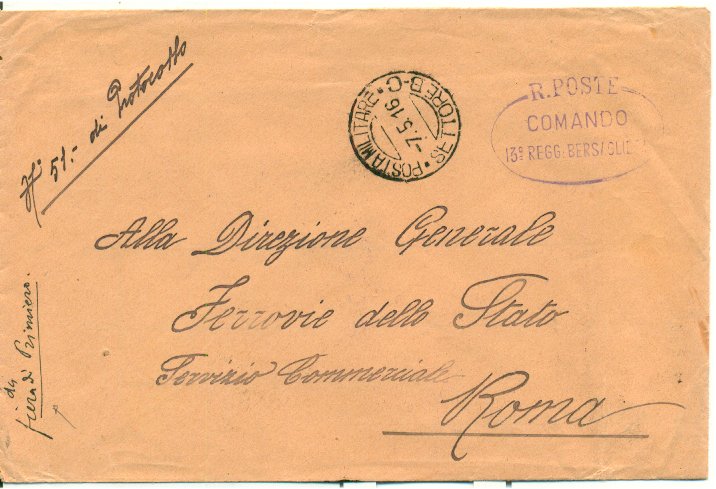 Nº 51.- di Protocollo
POSTA MILITARE · SETTORE B-C
-7.5.16
R. POSTE
COMANDO
13º REGG. BERSAGLIERI
Alla Direzione Generale
Ferrovie dello Stato
Servizio Commerciale
Roma
da
fiera di Primiero.